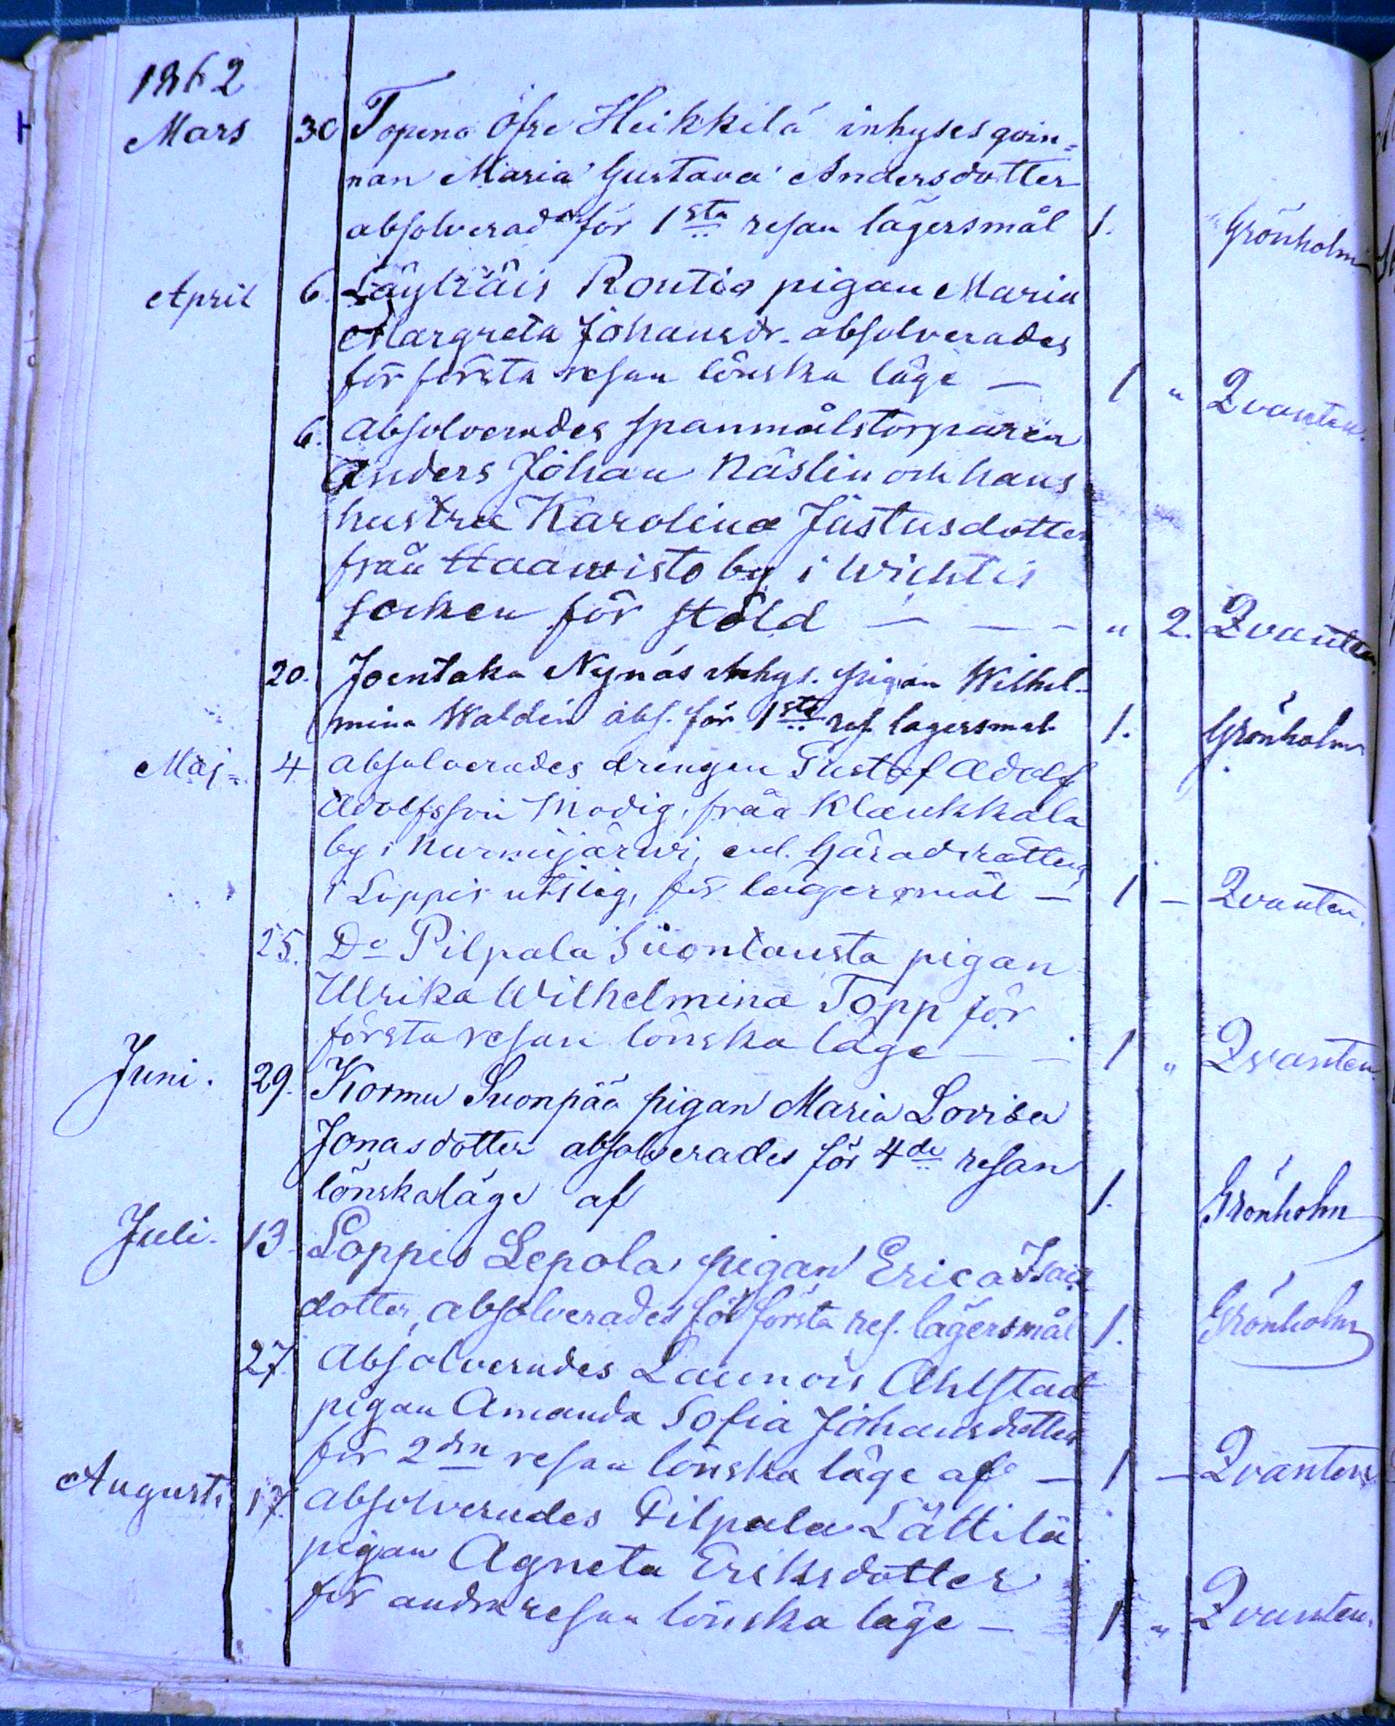 1862
Mars 30 Topeno Öfre Heikkilä inhyses qvin=
nan Maria Gustava Andersdotter
absolverad för 1sta resan lägersmål 1. Grönholm
April 6. Läyliäis Rontio pigan Maria
Margreta Johansdr. absolverades
för första resan lönska läge — 1 " Qvanten.
6. Absolverades spanmålstorparen
Anders Johan Näslin och hans
hustru Karolina Justusdotter
från Haawisto by i Wichtis
socken för stöld — — — " 2. Qvanten
20. Joentaka Nynäs inhys. pigan Wilhel-
mina Waldén abs. för 1sta res. lägersmål. 1. Grönholm
Maj=. 4 absolverades drengen Gustaf Adolf
Adolfsson Modig, från Klaukkala
by i Nurmijärwi, enl. häradsrättens
i Loppis utslag, för lägersmål — 1 — Qvanten.
25. Do Pilpala Suontausta pigan
Ulrika Wilhelmina Topp för
första resan lönska läge — — 1 " Qvanten.
Juni. 29. Kormu Suonpää pigan Maria Lovisa
Jonasdotter absolverades för 4de resan
lönskaläge af 1. Grönholm
Juli. 13. Loppis Lepola pigan Erica Isaks
dotter, absolverades för första res. lägersmål 1. Grönholm
27. Absolverades Launois Ahlstad
pigan Amanda Sofia Johansdotter
för 2dra resan lönska läge af — 1 — Qvanten
Augusti 17. absolverades Pilpala Lättilä
pigan Agneta Eriksdotter
för andra resan lönska läge — 1 " Qvanten.